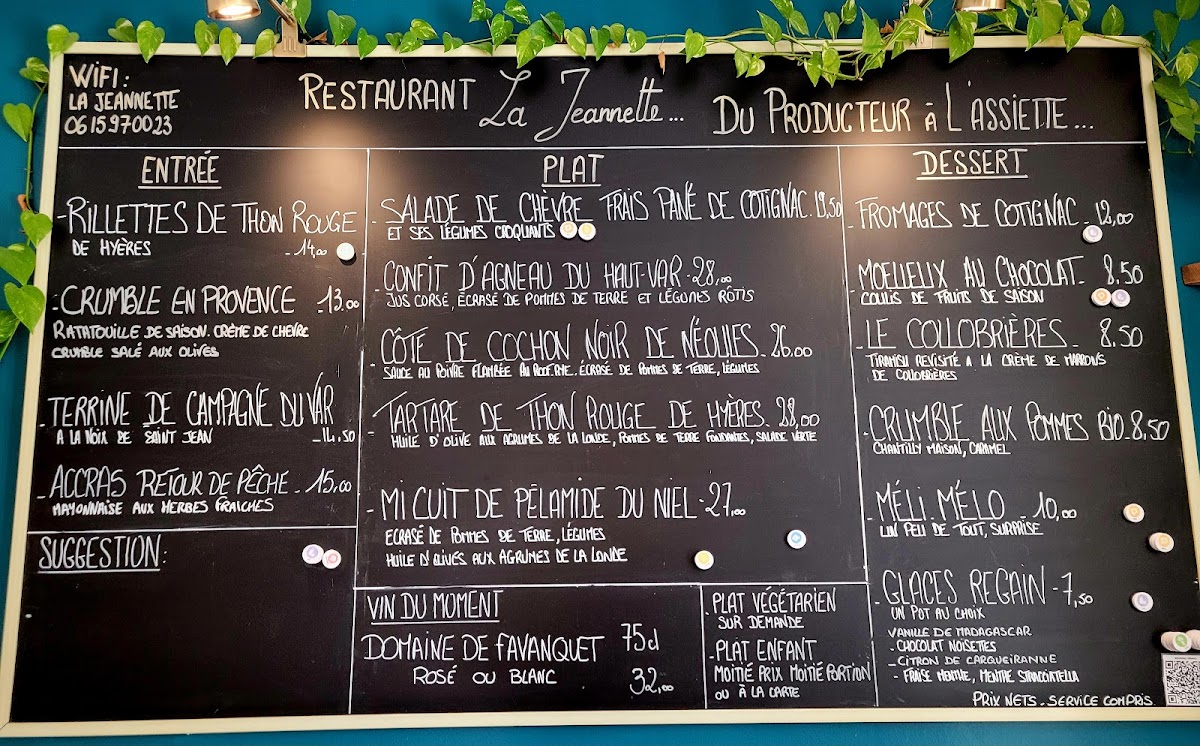 WiFi :
LA JEANNETTE
0615970023
RESTAURANT La Jeannette... DU PRODUCTEUR à L'ASSIETTE...
ENTRÉE
- RILLETTES DE THON ROUGE
DE HYÈRES - 14,00
- CRUMBLE EN PROVENCE - 13.00
RATATOUILLE DE SAISON. CRÈME DE CHEVRE
CRUMBLE SALÉ AUX OLIVES
- TERRINE DE CAMPAGNE DU VAR
A LA NOIX DE SAINT JEAN - 14,50
- ACCRAS RETOUR DE PÊCHE - 15,00
MAYONNAISE AUX HERBES FRAICHES
SUGGESTION :
PLAT
- SALADE DE CHÈVRE FRAIS PANÉ DE COTIGNAC. 19,50
ET SES LÉGUMES CROQUANTS
- CONFIT D'AGNEAU DU HAUT-VAR - 28,00
JUS CORSÉ, ÉCRASÉ DE POMMES DE TERRE ET LÉGUMES RÔTIS
- CÔTE DE COCHON NOIR DE NÉOULES - 26.00
SAUCE AU POIVRE FLAMBÉE AU . ÉCRASÉ DE POMMES DE TERRE, LÉGUMES
- TARTARE DE THON ROUGE DE HYÈRES - 28,00
HUILE D'OLIVE AUX AGRUMES DE LA LONDE, POMMES DE TERRE FONDANTES, SALADE VERTE
- MI CUIT DE PÉLAMIDE DU NIEL - 27,00
ECRASÉ DE POMMES DE TERRE, LÉGUMES
HUILE D'OLIVES AUX AGRUMES DE LA LONDE
VIN DU MOMENT
DOMAINE DE FAVANQUET 75cl
ROSÉ OU BLANC 32,00
- PLAT VÉGÉTARIEN
SUR DEMANDE
- PLAT ENFANT
MOITIÉ PRIX MOITIÉ PORTION
OU À LA CARTE
DESSERT
- FROMAGES DE COTIGNAC - 12,00
- MOELLEUX AU CHOCOLAT - 8.50
COULIS DE FRUITS DE SAISON
- LE COLLOBRIÈRES - 8.50
TIRAMISU REVISITÉ A LA CRÈME DE MARRONS
DE COLLOBRIÈRES
- CRUMBLE AUX POMMES BIO - 8,50
CHANTILLY MAISON, CARAMEL
- MÉLI. MÉLO - 10,00
UN PEU DE TOUT, SURPRISE
- GLACES REGAIN - 7,50
UN POT AU CHOIX
VANILLE DE MADAGASCAR
- CHOCOLAT NOISETTES
- CITRON DE CARQUEIRANNE
- FRAISE MENTHE, MENTHE STRACCIATELLA
PRIX NETS - SERVICE COMPRIS